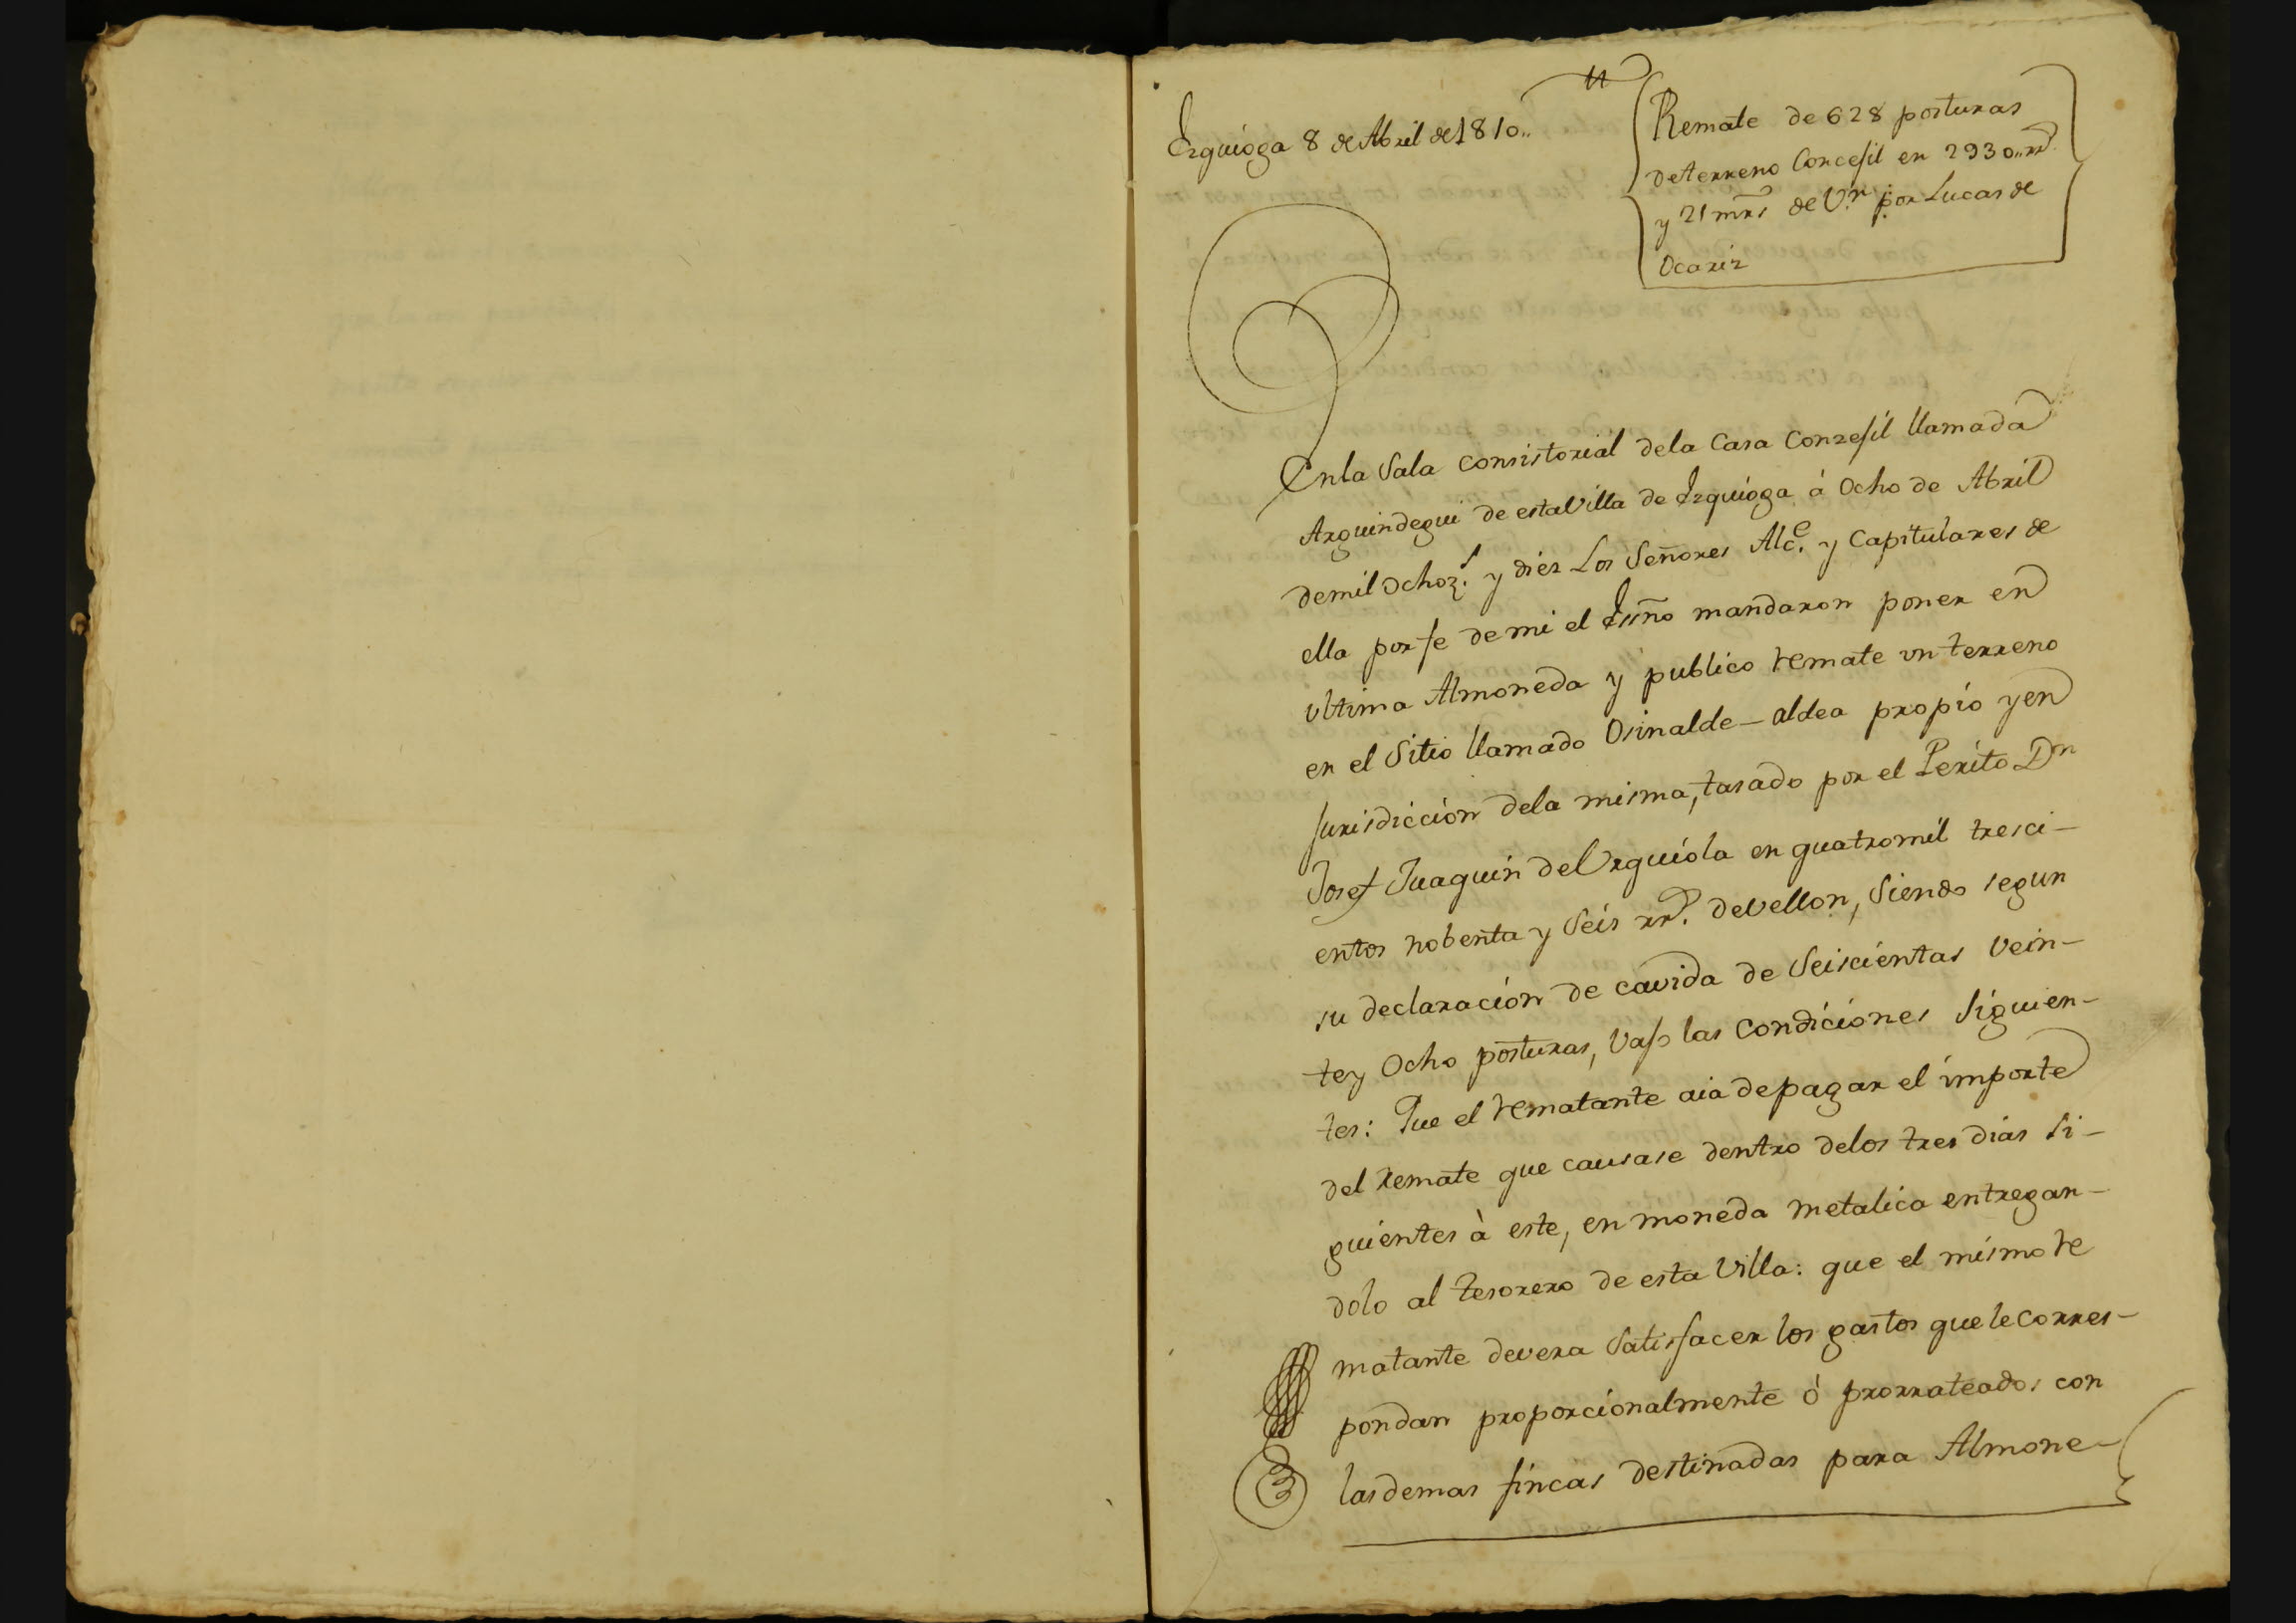 11
Ezquioga 8 de Abril de 1810..
Remate de 628 posturas
de terreno Concejil en 2930,,rr.^s
y 21 mrs de V.n por Lucas de
Ocariz
En la Sala consistorial dela Casa Conzejil llamada
Arguindegui de esta Villa de Ezquioga à ocho de Abril
demil ochoz.s y diez Los Señores Alc.e y Capitulares de
ella por fe de mi el Essño mandaron poner en
ultima Almoneda y publico remate vn terreno
en el Sitio llamado Osinalde-aldea propio y en
Jurisdiccion dela misma, tasado por el Perito Dn
Josef Juaquin de Urquiola en quatromil tresci-
entos nobenta y Seis rr.s devellon, Siendo segun
su declaracion de cavida de Seiscientas vein-
te y Ocho posturas, vajo las condiciones Siguien-
tes: Que el rematante aia de pagar el importe
del remate que causase dentro delos tres dias Si-
guientes à este, en moneda metalica entregan-
dolo al tesorero de esta Villa: que el mismo re
matante devera Satisfacer los gastos que le corres-
pondan proporcionalmente ò prorrateados con
lasdemas fincas destinadas para Almone-